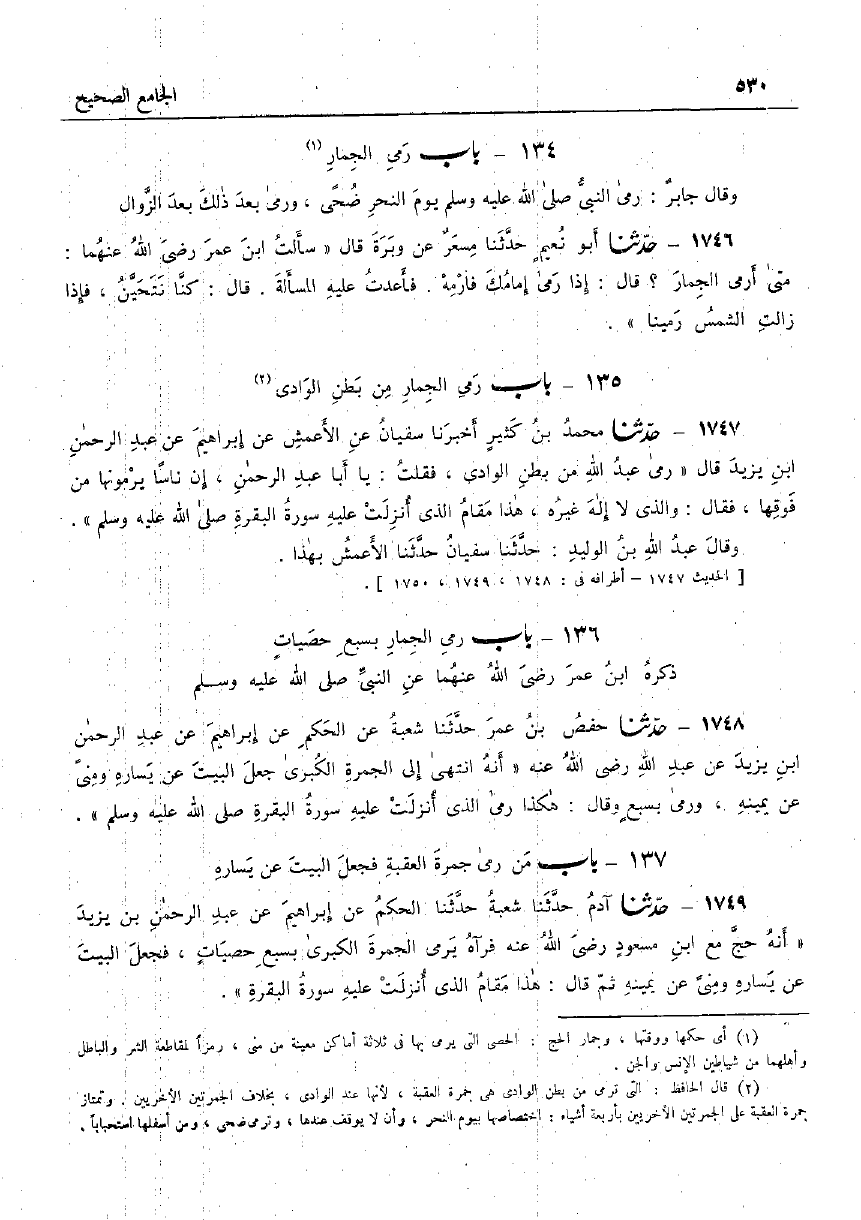 ٥٣٠ الجامع الصحيح
١٣٤ – باب رَمىِ الجِمارِ (١)
وقال جابرٌ : رمىٰ النبيُّ صلىٰ الله عليه وسلم يومَ النحرِ ضُحًى ، ورمىٰ بعدَ ذٰلكَ بعدَ الزَّوال
١٧٤٦ – حدّثنا أبو نُعيمٍ حدَّثَنا مِسعَرٌ عن وبَرَةَ قال « سألتُ ابنَ عمرَ رضىَ اللهُ عنهُما :
متىٰ أَرمى الجِمارَ ؟ قال : إذا رَمىٰ إمامُكَ فارْمِهْ . فأَعدتُ عليهِ المسألةَ . قال : كنَّا نَتَحَيَّنُ ، فإذا
زالتِ الشمسُ رَمينا » .
١٣٥ – باب رَمىِ الجِمارِ مِن بَطنِ الوَادى (٢)
١٧٤٧ – حدّثنا محمدُ بنُ كَثيرٍ أخبرَنا سفيانُ عنِ الأَعمشِ عن إبراهيمَ عن عبدِ الرحمٰنِ
ابنِ يزيدَ قال « رمىٰ عبدُ اللهِ من بطنِ الوادى ، فقلتُ : يا أبا عبدِ الرحمٰنِ ، إن ناسًا يرْمونها من
فَوقِها ، فقال : والذى لا إلٰهَ غيرُه ، هٰذا مَقامُ الذى أُنزِلَتْ عليهِ سورةُ البقرةِ صلىٰ الله عليه وسلم » .
وقالَ عبدُ اللهِ بنُ الوليدِ : حدَّثَنا سفيانُ حدَّثَنا الأَعمشُ بهٰذا .
[ الحديث ١٧٤٧ – أطرافه فى : ١٧٤٨ ، ١٧٤٩ ، ١٧٥٠ ] .
١٣٦ – باب رمىِ الجِمارِ بسبعِ حصَياتٍ
ذكرهُ ابنُ عمرَ رضىَ اللهُ عنهُما عنِ النبىِّ صلى الله عليه وسلم
١٧٤٨ – حدّثنا حفصُ بنُ عمرَ حدَّثَنا شعبةُ عن الحَكمِ عن إبراهيمَ عن عبدِ الرحمٰن
ابنِ يزيدَ عن عبدِ اللهِ رضى اللهُ عنه « أَنهُ انتهىٰ إلى الجمرةِ الكُبرىٰ جعلَ البيتَ عن يَسارهِ ومِنىً
عن يمينهِ ، ورمىٰ بسبعٍ وقال : هٰكذا رمىٰ الذى أُنزلَتْ عليهِ سورةُ البقرةِ صلى الله عليه وسلم » .
١٣٧ – باب مَن رمىٰ جمرةَ العقبةِ فجعلَ البيتَ عن يَسارهِ
١٧٤٩ – حدّثنا آدمُ حدَّثَنا شعبةُ حدَّثَنا الحكمُ عن إبراهيمَ عن عبدِ الرحمٰنِ بن يزيدَ
« أَنهُ حجَّ مع ابنِ مسعودٍ رضىَ اللهُ عنه فرآهُ يَرمى الجمرةَ الكبرىٰ بسبعِ حصيَاتٍ ، فجعلَ البيتَ
عن يَسارهِ ومِنىً عن يمينهِ ثمّ قال : هٰذا مَقامُ الذى أُنزلَتْ عليهِ سورةُ البقرةِ » .
(١) أى حكمها ووقتها ، وجمار الحج : الحصى التى يرمى بها فى ثلاثة أماكن معينة من منى ، رمزاً لمقاطعة الشر والباطل
وأهلهما من شياطين الإنس والجن .
(٢) قال الحافظ : التى ترمى من بطن الوادى هى جمرة العقبة ، لأنها عند الوادى ، بخلاف الجمرتين الأخريين . وتمتاز
جمرة العقبة على الجمرتين الأخريين بأربعة أشياء : اختصاصها بيوم النحر ، وأن لا يوقف عندها ، وترمى ضحى ، ومن أسفلها استحباباً .